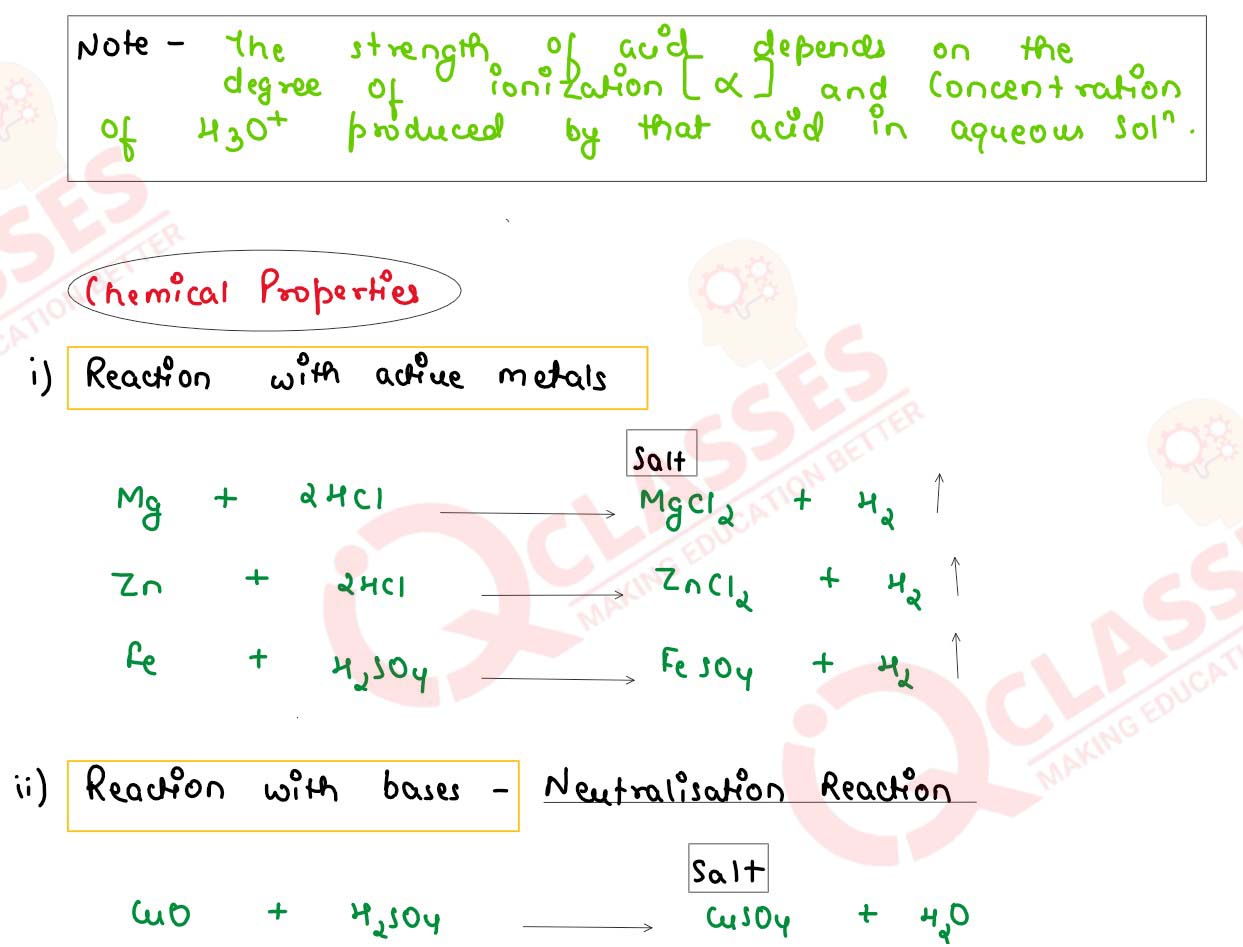 Note - The strength of acid depends on the
degree of ionization [α] and Concentration
of H3O+ produced by that acid in aqueous solⁿ.
Chemical Properties
i) Reaction with active metals
Salt
Mg + 2HCl → MgCl₂ + H₂ ↑
Zn + 2HCl → ZnCl₂ + H₂ ↑
Fe + H₂SO4 → FeSO4 + H₂ ↑
ii) Reaction with bases - Neutralisation Reaction
Salt
CuO + H₂SO4 → CuSO4 + H₂O
SSES
ATION BETTER
QCLASSES
MAKING EDUCATION BETTER
QCLASS
MAKING EDUCAT